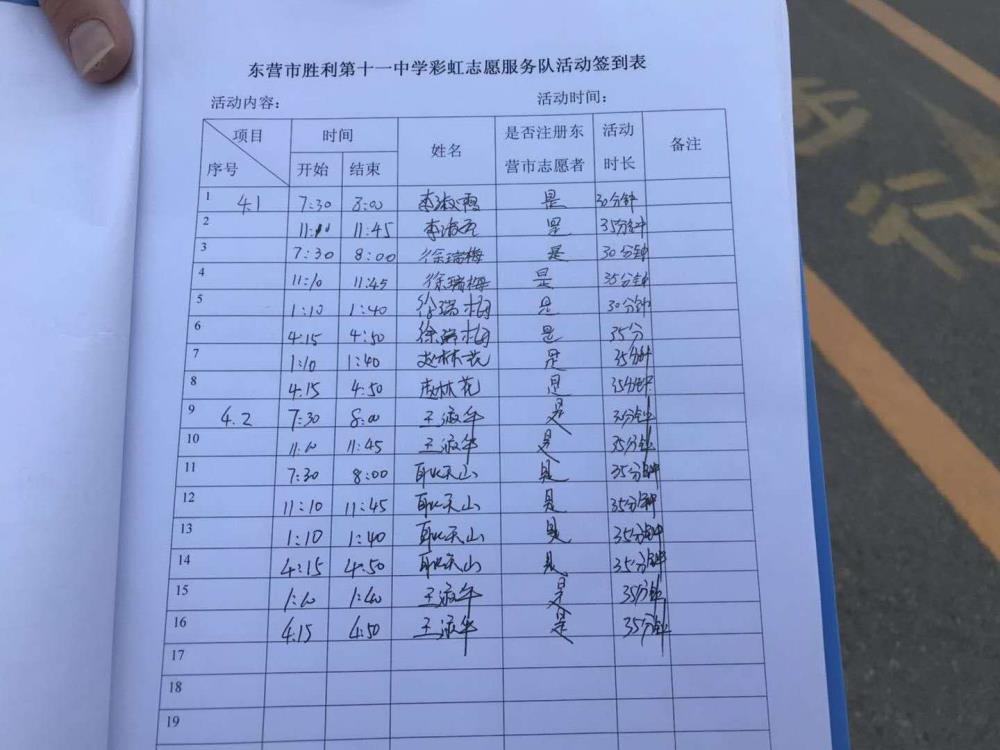 东营市胜利第十一中学彩虹志愿服务队活动签到表
活动内容: 活动时间:
项目 序号 时间 开始 结束 姓名 是否注册东营市志愿者 活动时长 备注
1 4.1 7:30 8:00 李淑雨 是 30分钟
2 11:10 11:45 李淑雨 是 35分钟
3 7:30 8:00 徐瑞梅 是 30分钟
4 11:10 11:45 徐瑞梅 是 35分钟
5 1:10 1:40 徐瑞梅 是 30分钟
6 4:15 4:50 徐瑞梅 是 35分
7 1:10 1:40 赵林花 是 35分钟
8 4:15 4:50 赵林花 是 35分钟
9 4.2 7:30 8:00 王淑华 是 30分钟
10 11:10 11:45 王淑华 是 35分钟
11 7:30 8:00 耿天山 是 35分钟
12 11:10 11:45 耿天山 是 35分钟
13 1:10 1:40 耿天山 是 35分钟
14 4:15 4:50 耿天山 是 35分钟
15 1:10 1:40 王淑华 是 35分钟
16 4:15 4:50 王淑华 是 35分钟
17
18
19